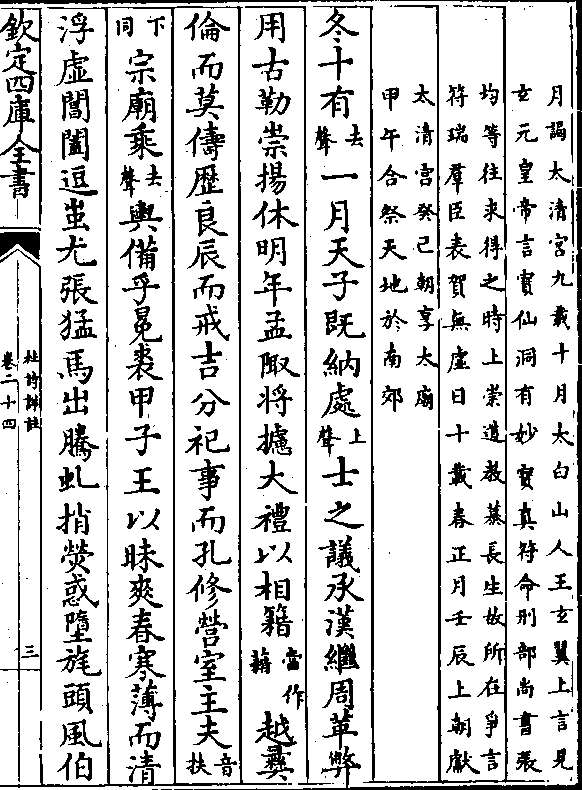 月謁太清宮九載十月太白山人王玄翼上言見
玄元皇帝言寳仙洞有妙寳真符命刑部尚書張
均等往求得之時上崇道教慕長生故所在爭言
符瑞羣臣表賀無虛日十載春正月壬辰上朝獻
太清宮癸巳朝享太廟
甲午合祭天地於南郊
冬十有去聲一月天子既納處上聲士之議承漢繼周革弊
用古勒崇揚休明年孟陬将攄大禮以相籍當作藉越彞
倫而莫儔歴良辰而戒吉分祀事而孔修營室主夫音扶
下同宗廟乘去聲輿備乎冕裘甲子王以昧爽春寒薄而清
浮虛閶闔逗蚩尤張猛馬出騰虬捎熒惑墮旄頭風伯
欽定四庫全書
杜詩詳註
卷二十四
三